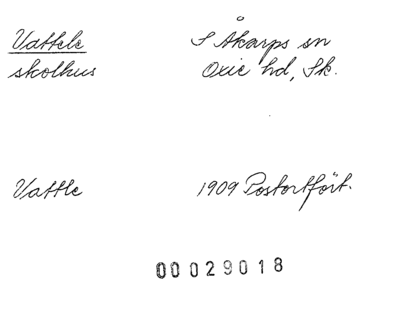 Vattele S Åkarps sn
skolhus Oxie hd, Sk.
Vattle 1909 Postortfört.
00029018